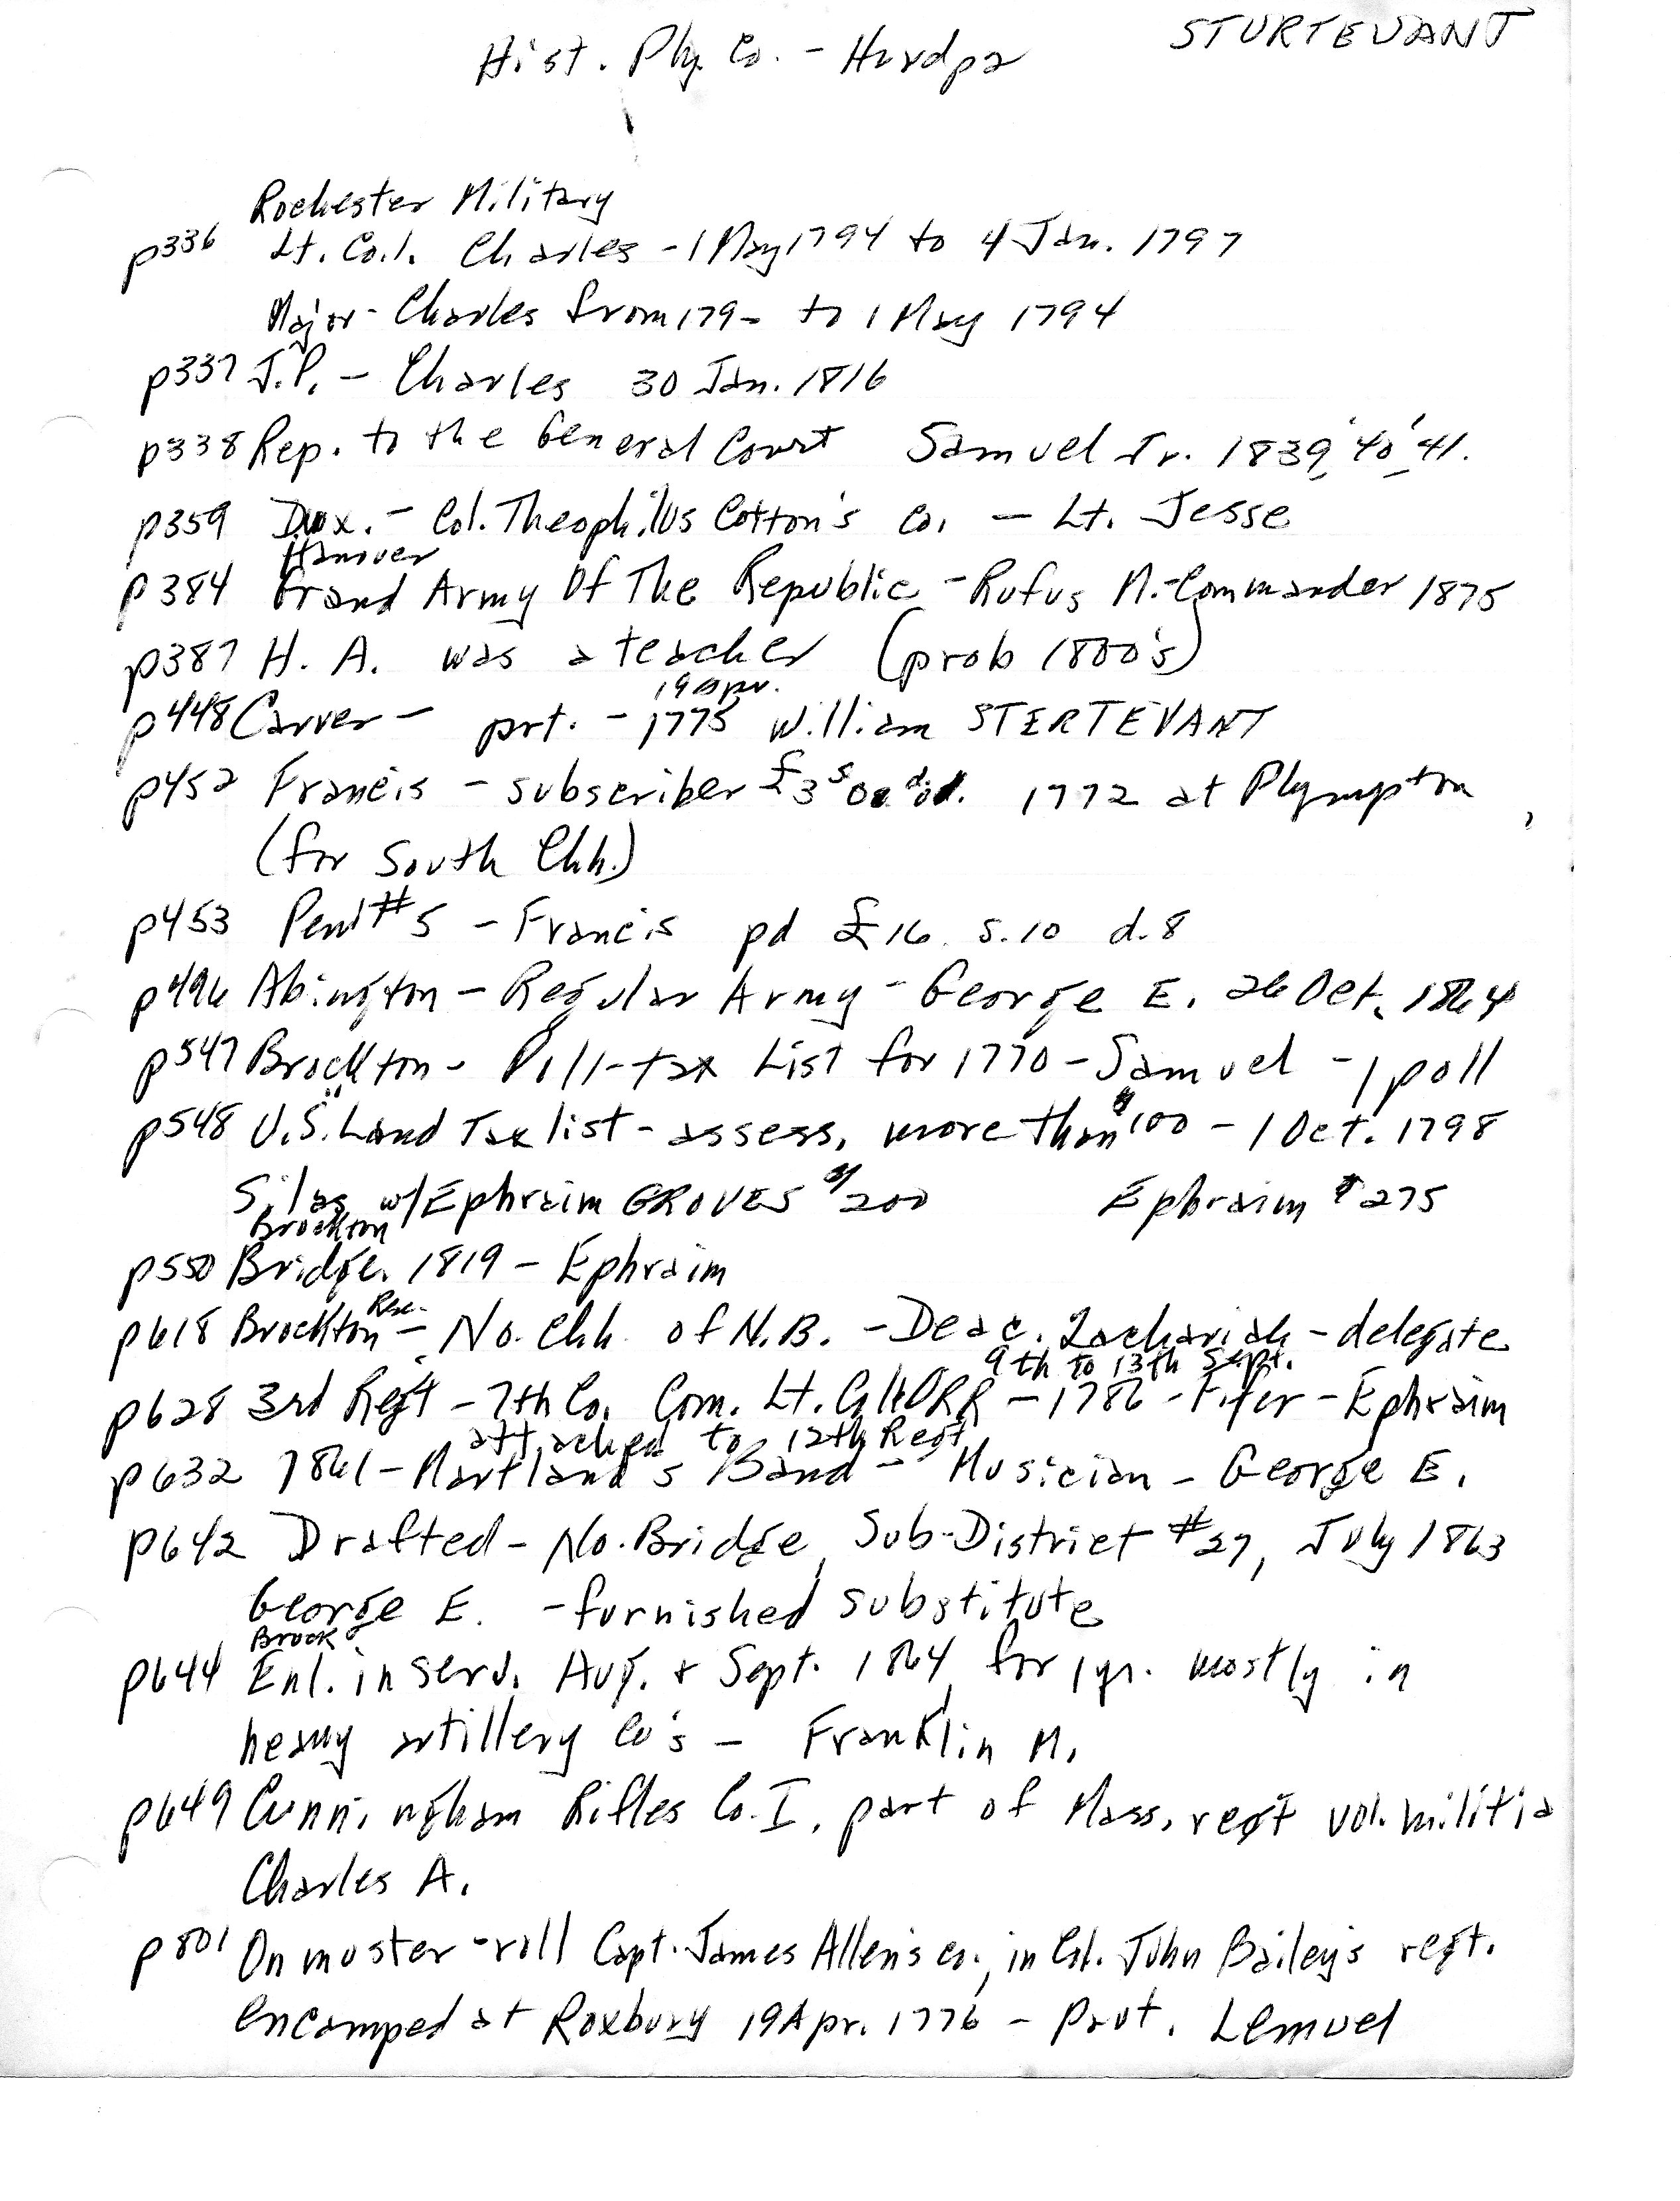 STURTEVANT
Hist. Ply. Co. - Hurd pz
Rochester Military
p336 Lt. Col. Charles - 1 May 1794 to 4 Jan. 1797
Major - Charles from 179- to 1 May 1794
p337 J.P. - Charles 30 Jan. 1816
p338 Rep. to the General Court Samuel Jr. 1839, '40, '41.
p359 Dux. - Col. Theophilus Cotton's Co. - Lt. Jesse
Hanover
p384 Grand Army Of The Republic - Rufus M. - Commander 1875
p387 H. A. was a teacher (prob 1800's)
19 Apr.
p448 Carver - prt. - 1775 William STERTEVANT
p452 Francis - subscriber £3 s0 d0. 1772 at Plympton
(for South Chh.)
p453 Pew #5 - Francis pd £16 s.10 d.8
p496 Abington - Regular Army - George E. 26 Oct. 1864
p547 Brockton - Poll-tax List for 1770 - Samuel - 1 poll
p548 " U.S. Land Tax list - assess. more than $100 - 1 Oct. 1798
Silas w/ Ephraim GROVES $200 Ephraim $275
Brockton
p550 Bridge. 1819 - Ephraim
p618 Brockton - No. Chh. of N.B. - Deac. Zachariah - delegate
9th to 13th Sept.
p628 3rd Regt - 7th Co. Com. Lt. Call ORR - 1786 - Fifer - Ephraim
attached to 12th Regt
p632 1861 - Martland's Band - Musician - George E.
p642 Drafted - No. Bridge, Sub-District #27, July 1863
George E. - furnished substitute
Brock
p644 Enl. in serv. Aug. & Sept. 1864, for 1 yr. mostly in
heavy artillery Co's - Franklin M.
p649 Cunningham Rifles Co. I, part of Mass. regt vol. militia
Charles A.
p801 On muster-roll Capt. James Allen's co., in Col. John Bailey's regt.
encamped at Roxbury 19 Apr. 1776 - Pvt. Lemuel